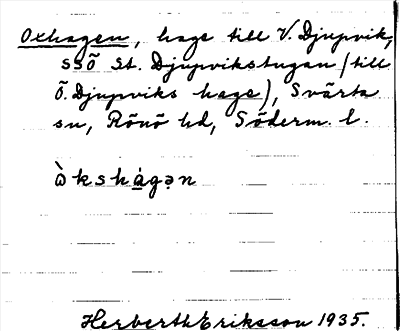 Oxhagen, hage till V. Djupvik,
SSÖ St. Djupvikstugan (till
Ö. Djupviks hage), Svärta
sn, Rönö hd, Söderm. l.
ò̀kshá̱gə̣n
Herberth Eriksson 1935.